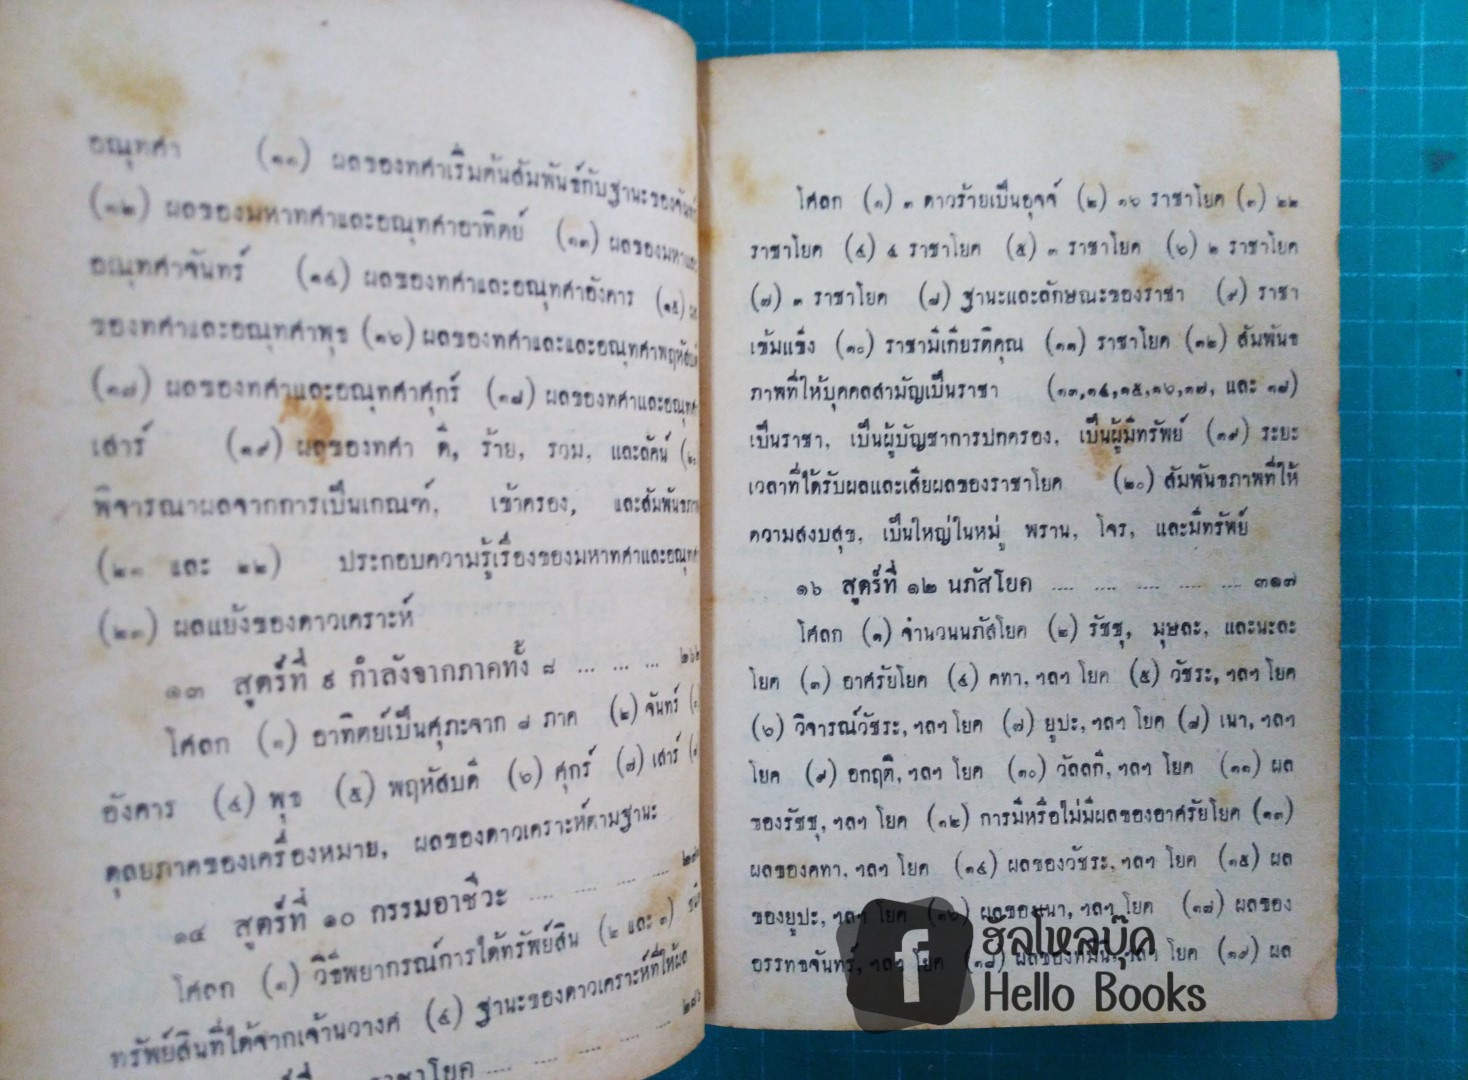 อณุทศา (๑๑) ผลของทศาเริ่มต้นสัมพันธ์กับฐานะของจันทร์
(๑๒) ผลของมหาทศาและอณุทศาอาทิตย์ (๑๓) ผลของมหาและ
อณุทศาจันทร์ (๑๔) ผลของทศาและอณุทศาอังคาร (๑๕) ผล
ของทศาและอณุทศาพุธ (๑๖) ผลของทศาและและอณุทศาพฤหัสบดี
(๑๗) ผลของทศาและอณุทศาศุกร์ (๑๘) ผลของทศาและอณุทศา
เสาร์ (๑๙) ผลของทศา ดี, ร้าย, รวม, และลัคน์
พิจารณาผลจากการเป็นเกณฑ์, เข้าครอง, และสัมพันธภาพ
(๒๑ และ ๒๒) ประกอบความรู้เรื่องของมหาทศาและอณุทศา
(๒๓) ผลแย้งของดาวเคราะห์
๑๓ สูตร์ที่ ๙ กำลังจากภาคทั้ง ๘ ... ... ...
โศลก (๑) อาทิตย์เป็นศุภะจาก ๘ ภาค (๒) จันทร์
อังคาร (๔) พุธ (๕) พฤหัสบดี (๖) ศุกร์ (๗) เสาร์
ดุลยภาคของเครื่องหมาย, ผลของดาวเคราะห์ตามฐานะ
๑๔ สูตร์ที่ ๑๐ กรรมอาชีวะ .... .... .... ....
โศลก (๑) วิธีพยากรณ์การได้ทรัพย์สิน (๒ และ ๓)
ทรัพย์สินที่ได้จากเจ้านวางศ์ (๔) ฐานะของดาวเคราะห์ที่ให้ผล
ราชาโยค .... .... .... ....
โศลก (๑) ๓ ดาวร้ายเป็นอุจจ์ (๒) ๑๖ ราชาโยค (๓) ๒๒
ราชาโยค (๔) ๔ ราชาโยค (๕) ๓ ราชาโยค (๖) ๒ ราชาโยค
(๗) ๓ ราชาโยค (๘) ฐานะและลักษณะของราชา (๙) ราชา
เข้มแข็ง (๑๐) ราชามีเกียรติคุณ (๑๑) ราชาโยค (๑๒) สัมพันธ
ภาพที่ให้บุคคลสามัญเป็นราชา (๑๓,๑๔,๑๕,๑๖,๑๗, และ ๑๘)
เป็นราชา, เป็นผู้บัญชาการปกครอง, เป็นผู้มีทรัพย์ (๑๙) ระยะ
เวลาที่ได้รับผลและเสียผลของราชาโยค (๒๐) สัมพันธภาพที่ให้
ความสงบสุข, เป็นใหญ่ในหมู่ พราน, โจร, และมีทรัพย์
๑๖ สูตร์ที่ ๑๒ นภัสโยค .... .... .... .... .... ๓๑๗
โศลก (๑) จำนวนนภัสโยค (๒) รัชชุ, มุษละ, และนะละ
โยค (๓) อาศรัยโยค (๔) คทา, ฯลฯ โยค (๕) วัชระ, ฯลฯ โยค
(๖) วิจารณ์วัชระ, ฯลฯ โยค (๗) ยูปะ, ฯลฯ โยค (๘) เนา, ฯลฯ
โยค (๙) อกฤติ, ฯลฯ โยค (๑๐) วัลลกี, ฯลฯ โยค (๑๑) ผล
ของรัชชุ, ฯลฯ โยค (๑๒) การมีหรือไม่มีผลของอาศรัยโยค (๑๓)
ผลของคทา, ฯลฯ โยค (๑๔) ผลของวัชระ, ฯลฯ โยค (๑๕) ผล
ของยูปะ, ฯลฯ โยค (๑๖) ผลของเนา, ฯลฯ โยค (๑๗) ผลของ
อรรทธจันทร์, ฯลฯ โยค (๑๘) ผลของ ฯลฯ โยค (๑๙) ผล
ฮัลโหลบุ๊ค
Hello Books